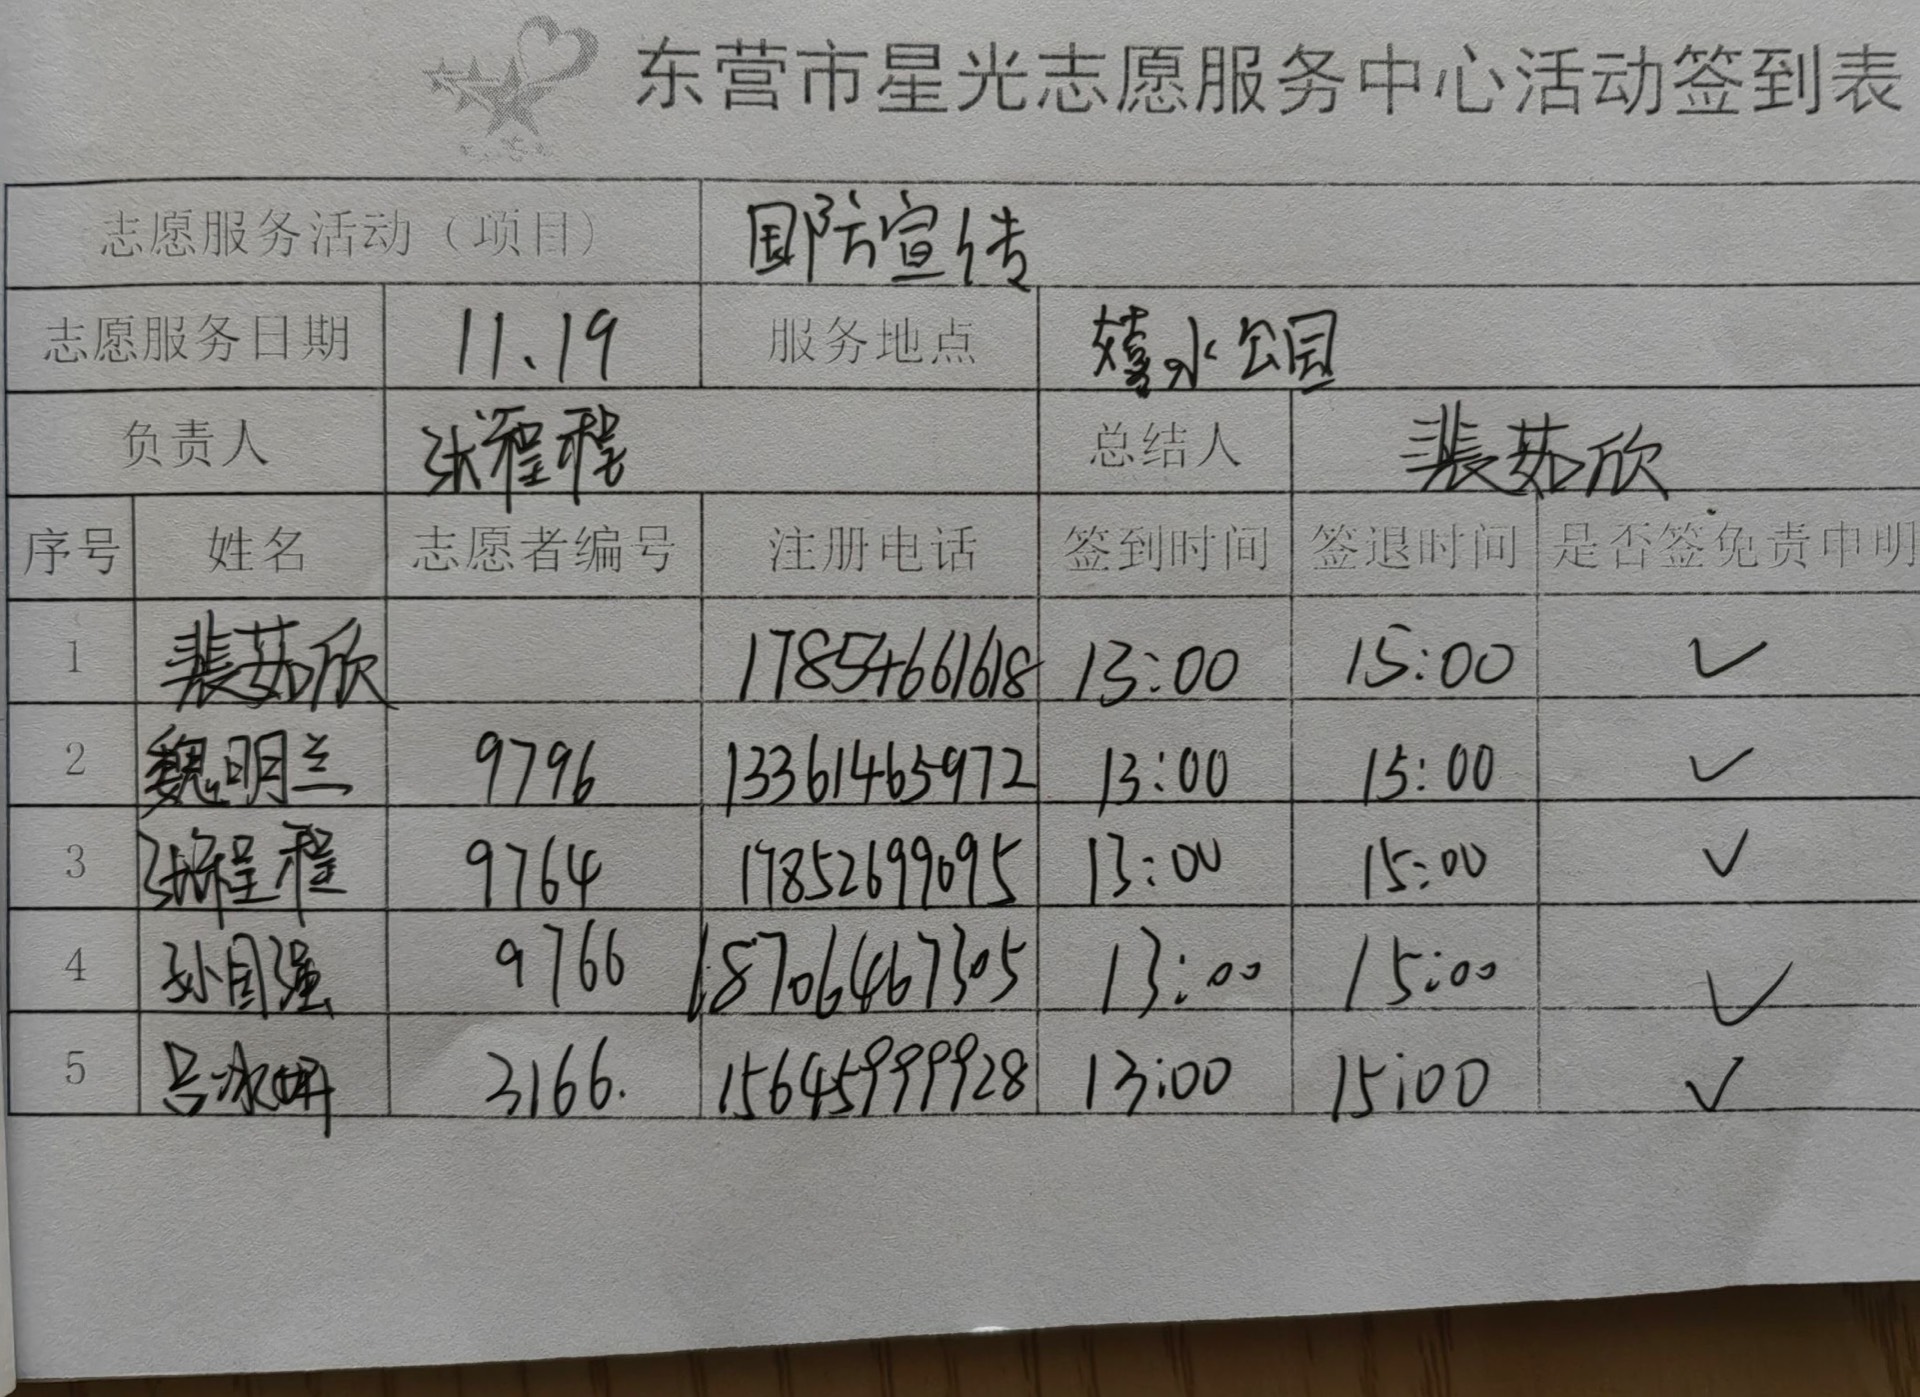 东营市星光志愿服务中心活动签到表
志愿服务活动（项目） 国防宣传
志愿服务日期 11、19 服务地点 嬉水公园
负责人 张程程 总结人 裴茹欣
序号 姓名 志愿者编号 注册电话 签到时间 签退时间 是否签免责申明
1 裴茹欣 17854661618 13:00 15:00 ✓
2 魏明兰 9796 13361465972 13:00 15:00 ✓
3 张程程 9764 17852699095 13:00 15:00 ✓
4 孙国强 9766 18706467305 13:00 15:00 ✓
5 吕冰妍 3166. 15645999928 13:00 15:00 ✓